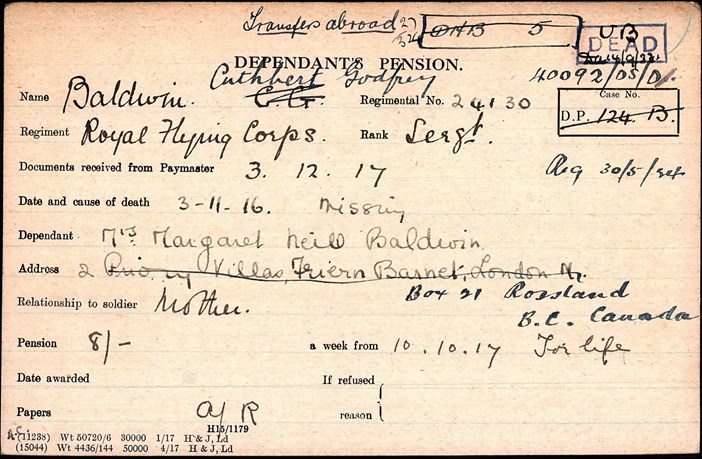 Transfers abroad 27/3/24 DHB 5 UB
DEAD
DEPENDANT'S PENSION.
Cuthbert Godfrey 40092/05/D/.
Name Baldwin. C G. Regimental No. 24130 Case No.
D.P. 124. B.
Regiment Royal Flying Corps. Rank Sergt.
Documents received from Paymaster 3. 12. 17 Reg 30/5/24
Date and cause of death 3-11-16. Missing
Dependant Mrs Margaret Neill Baldwin
Address 2 Priory Villas, Friern Barnet, London N.
Box 21 Rossland
Relationship to soldier Mother. B.C. Canada
Pension 8/- a week from 10.10.17 For life
Date awarded If refused
Papers A/R reason
H15/1179
(11238) Wt 50720/6 30000 1/17 H & J, Ld
(15044) Wt 4436/144 50000 4/17 H & J, Ld